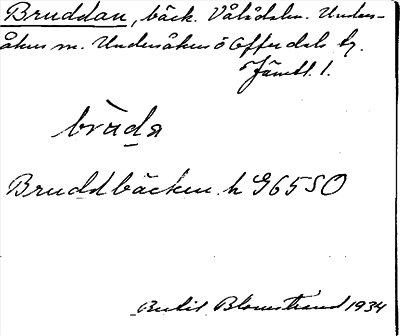 Bruddan, bäck. Vålådalen. Unders-
åkers sn. Undersåkers o Offerdals tg.
Jämtl. l.
Bruddbäcken h G65SO
Bertil Blomstrand 1934